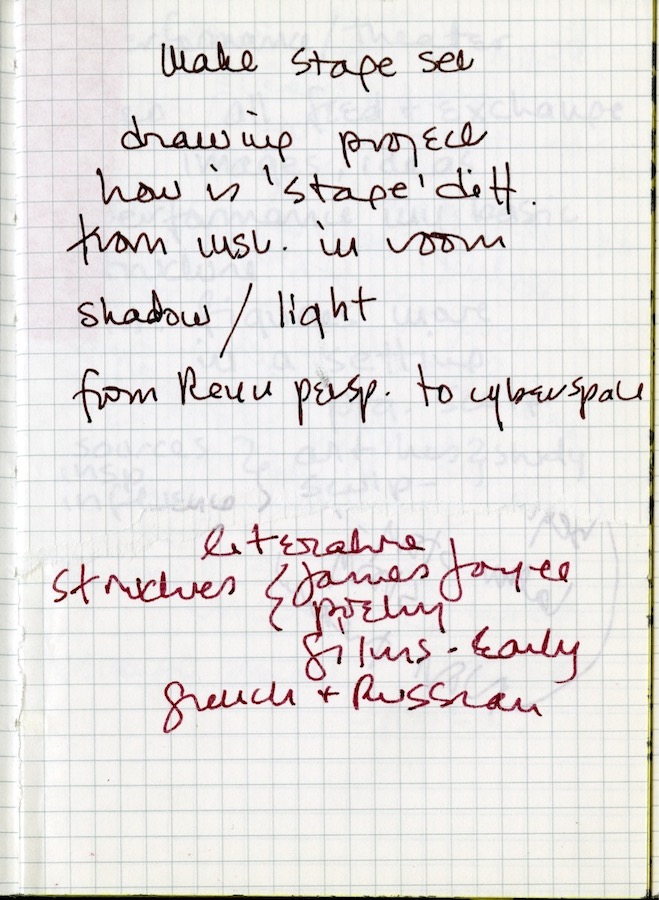 Make stage set
drawing project
how is 'stage' diff.
from inst. in room
shadow / light
from Renn persp. to cyberspace
literature
structures { James Joyce
{ poetry
films - Early
French + Russian